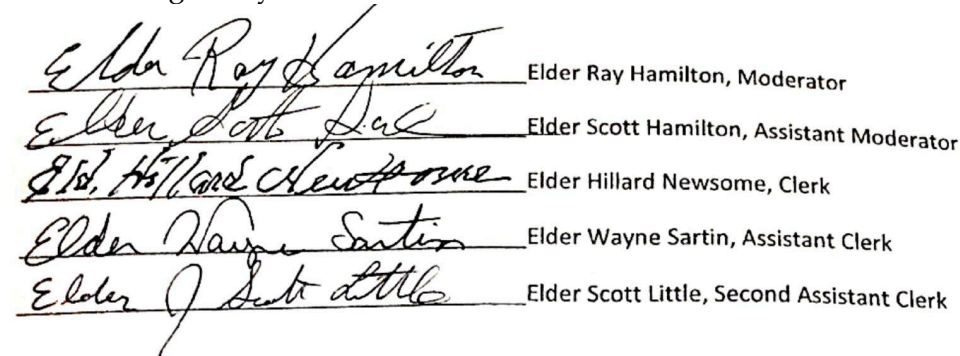 Elder Ray Hamilton Elder Ray Hamilton, Moderator
Elder Scott Elder Scott Hamilton, Assistant Moderator
Eld. Hillard Newsome Elder Hillard Newsome, Clerk
Elder Wayne Sartin Elder Wayne Sartin, Assistant Clerk
Elder J Scott Little Elder Scott Little, Second Assistant Clerk